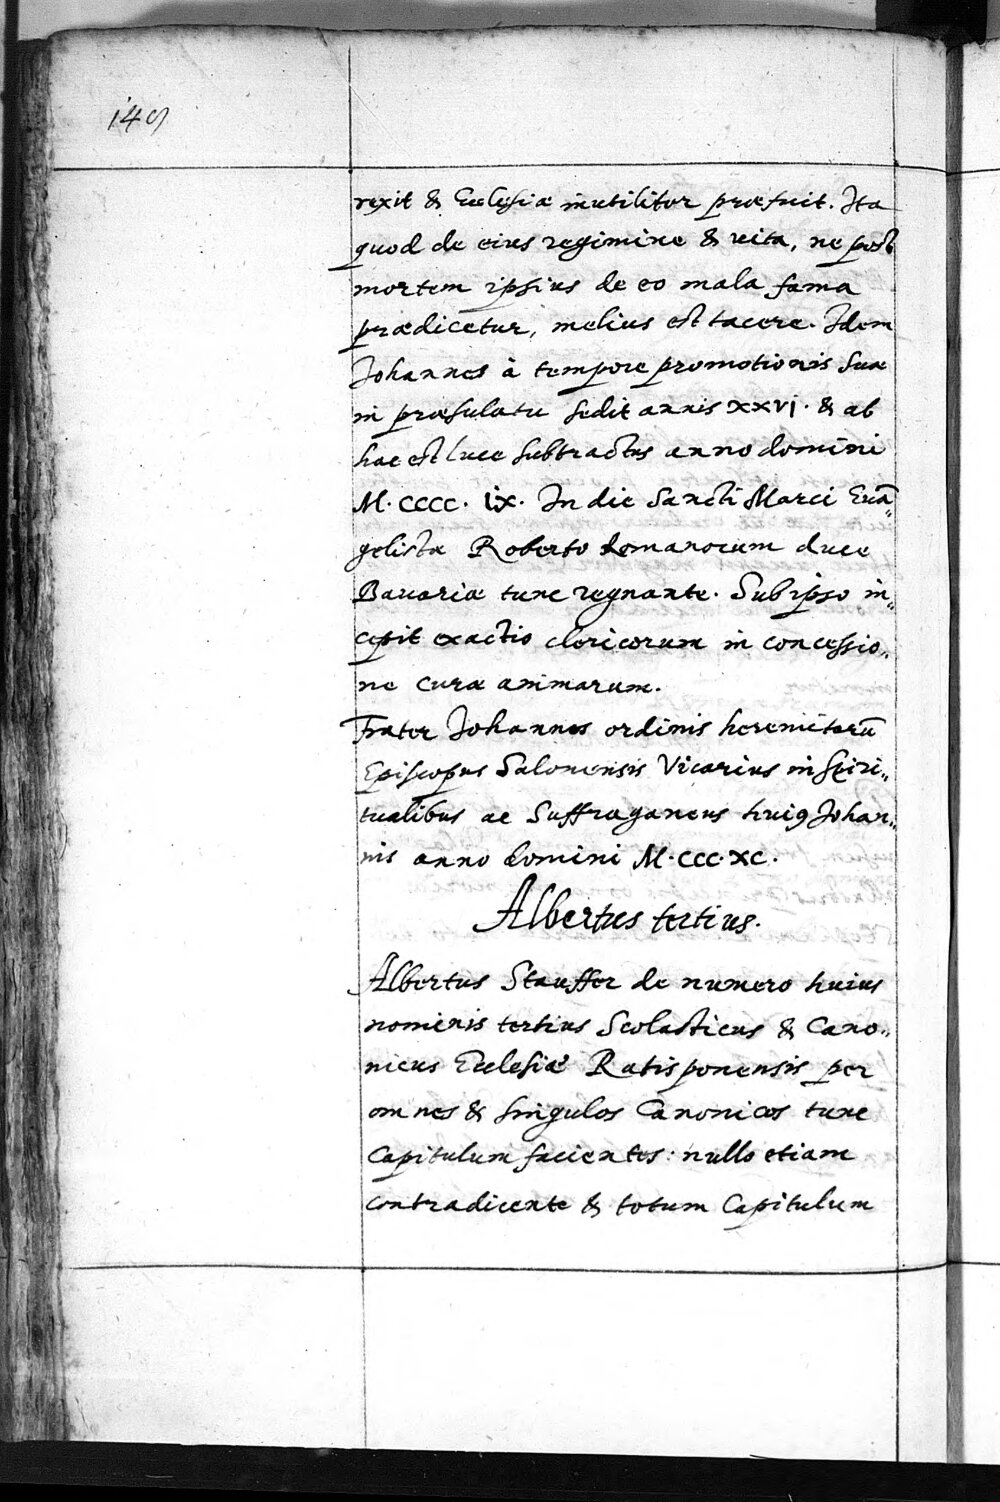 149
rexit & Ecclesiæ inutiliter præfuit. Ita
quod de eius regimine & vita, ne post
mortem ipsius de eo mala fama
prædicetur, melius est tacere. Idem
Johannes à tempore promotionis suæ
in præsulatu sedit annis xxvj. & ab
hac est luce subtractus anno domini
M. CCCC. ix. In die Sancti Marci Euā„
gelista Roberto Romanorum duce
Bauariæ tunc regnante. Sub ipso in„
cepit exactio clericorum in concessio„
ne curæ animarum.
Frater Johannes ordinis heremitarū
Episcopus Salonensis Vicarius in spiri„
tualibus ac Suffraganeus huiꝰ Johan„
nis anno domini M. CCC. XC.
Albertus tertius.
Albertus Stauffer de numero huius
nominis tertius Scolasticus & Cano„
nicus Ecclesiæ Ratisponensis per
omnes & singulos Canonicos tunc
Capitulum facientes: nullo etiam
contradicente & totum Capitulum